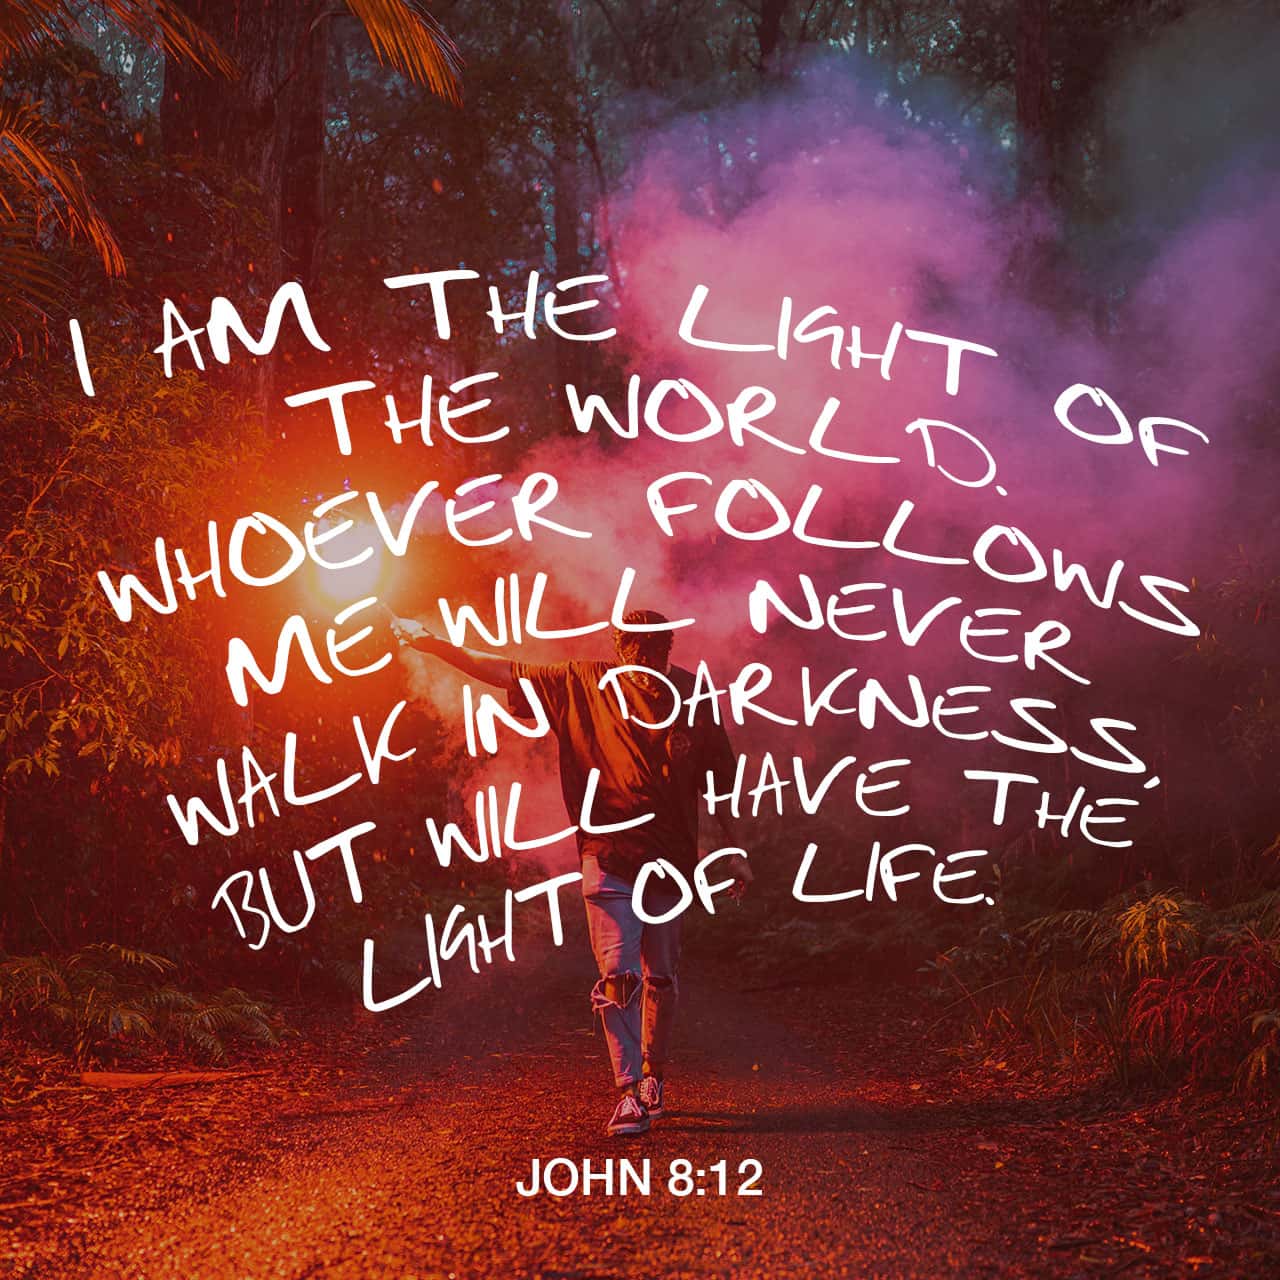 I AM THE LIGHT OF
THE WORLD.
WHOEVER FOLLOWS
ME WILL NEVER
WALK IN DARKNESS,
BUT WILL HAVE THE
LIGHT OF LIFE.
JOHN 8:12